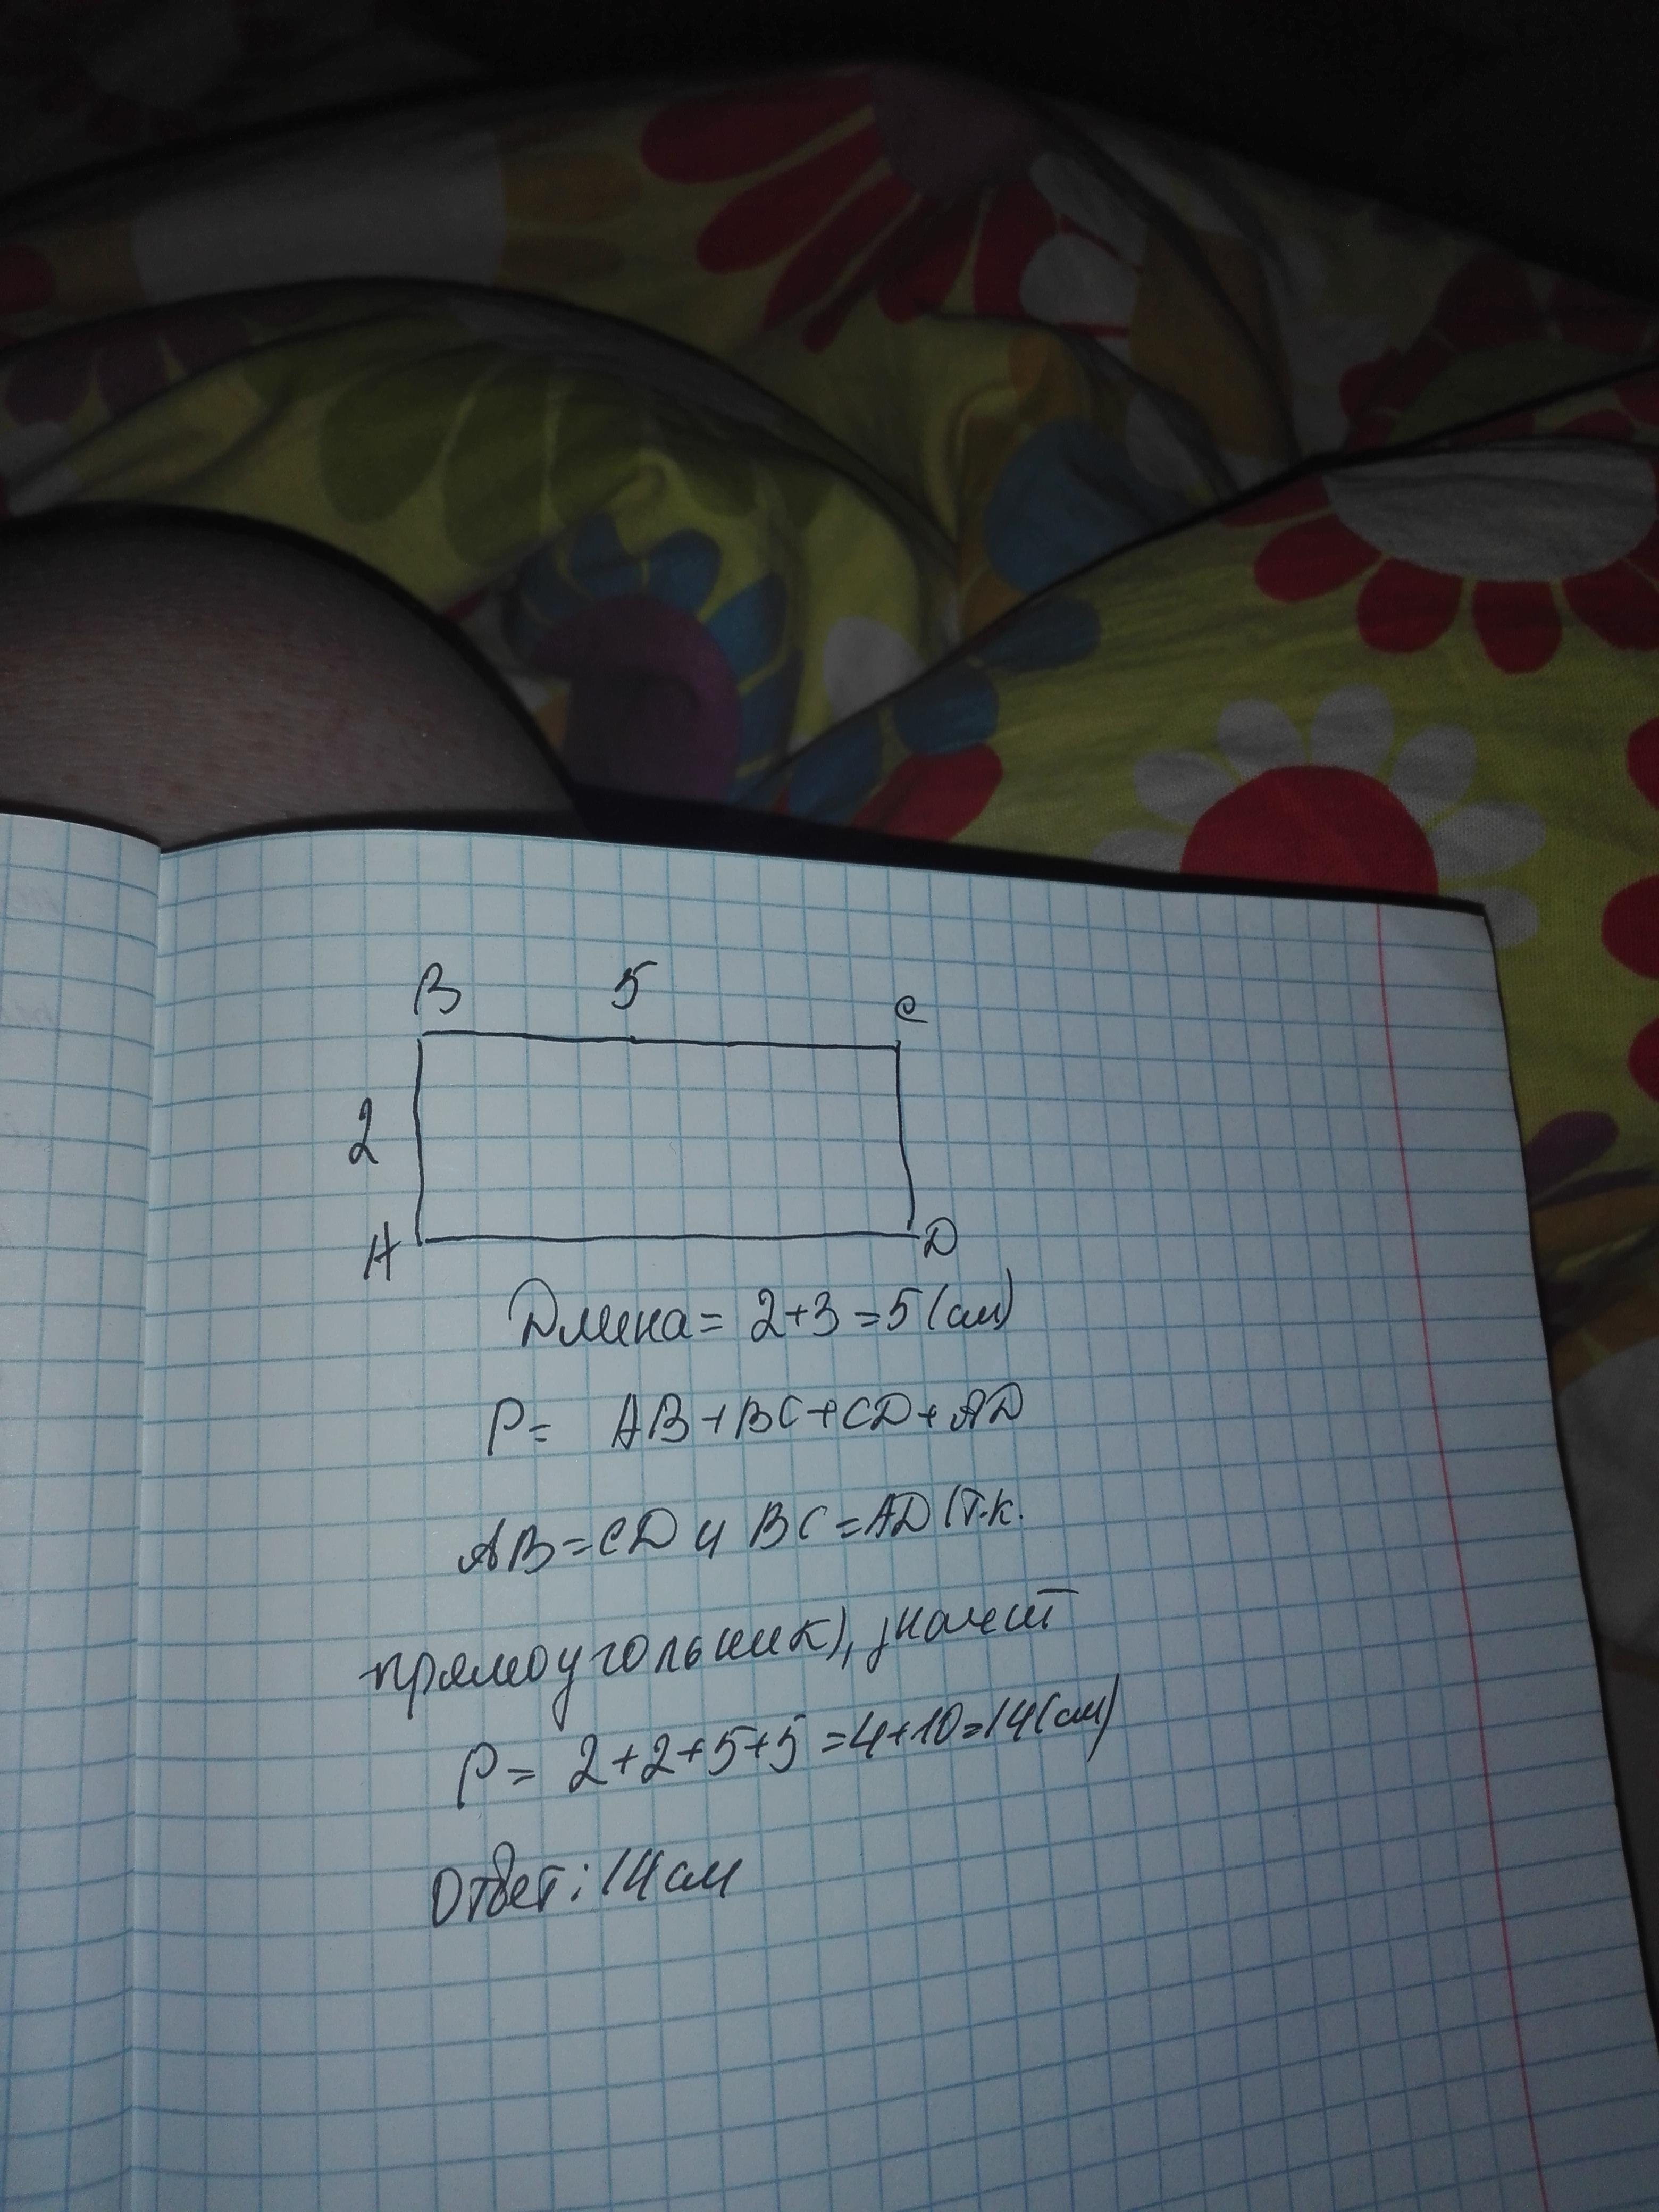 B 5 C
2
A D
Длина = 2+3=5(см)
P= AB+BC+CD+AD
AB=CD и BC=AD(т.к.
прямоугольник), значит
P= 2+2+5+5=4+10=14(см)
Ответ: 14 см